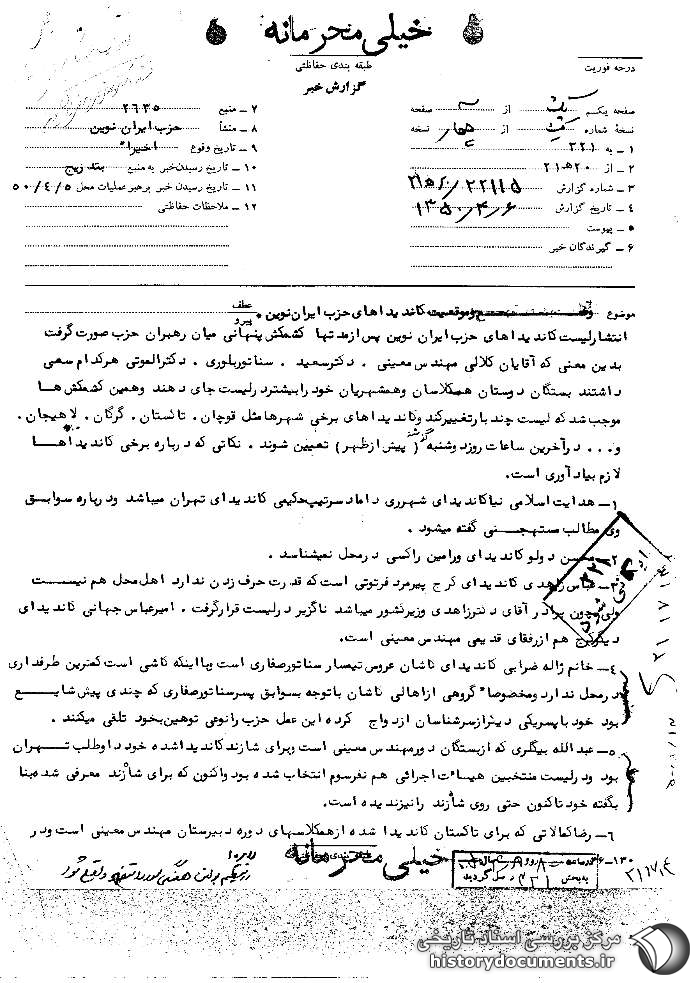 خیلی محرمانه
طبقه بندی حفاظتی
درجه فوریت
گزارش خبر
صفحه یکم از سه صفحه
نسخه شماره یک از چهار نسخه
۱ ـ به ۳۲۱
۲ ـ از ۲۰ ه ۲۱
۳ ـ شماره گزارش ۲۲۱۱۵ / ۲۰ ه ۲۱
۴ ـ تاریخ گزارش ۱۳۵۰/۴/۶
۵ ـ پیوست
۶ ـ گیرندگان خبر
۷ ـ منبع ۲۶۳۵
۸ ـ منشأ حزب ایران نوین
۹ ـ تاریخ وقوع اخیراً
۱۰ ـ تاریخ رسیدن خبر به منبع بتدریج
۱۱ ـ تاریخ رسیدن خبر برهبر عملیات محل ۵۰/۴/۵
۱۲ ـ ملاحظات حفاظتی
موضوع وموقعیت کاندیداهای حزب ایران نوین .
عطف
پیرو
انتشار لیست کاندیداهای حزب ایران نوین پس از مدتها کشمکش پنهانی میان رهبران حزب صورت گرفت
بدین معنی که آقایان کلالی مهندس معینی . دکتر سعید . سناتور بلوری . دکتر الموتی هرکدام سعی
داشتند بستگان دوستان همکلاسان وهمشهریان خود را بیشتر در لیست جای دهند وهمین کشمکش ها
موجب شد که لیست چند بار تغییر کند وکاندیداهای برخی شهرها مثل قوچان . تاکستان . گرگان . لاهیجان .
و... در آخرین ساعات روز دوشنبه گذشته ( پیش از ظهر ) تعیین شوند . نکاتی که درباره برخی کاندیداها
لازم بیادآوری است.
۱ـ هدایت اسلامی نیا کاندیدای شهرری داماد سرتیپ حکیمی کاندیدای تهران میباشد ودرباره سوابق
وی مطالب مستهجنی گفته میشود .
۲ـ دولو کاندیدای ورامین راکسی در محل نمیشناسد .
عباس زاهدی کاندیدای کرج پیرمرد فرتوتی است که قدرت حرف زدن ندارد اهل محل هم نیست
ولی چون برادر آقای دکتر زاهدی وزیر کشور میباشد ناگزیر در لیست قرار گرفت . امیر عباس جهانی کاندیدای
دیگر کرج هم از رفقای قدیمی مهندس معینی است.
۴ـ خانم ژاله ضرابی کاندیدای کاشان عروس تیمسار سناتور صفاری است وبا اینکه کاشی است کمترین طرفداری
در محل ندارد ومخصوصاً گروهی از اهالی کاشان باتوجه بسوابق پسر سناتور صفاری که چندی پیش شایع
بود خود با پسر یکی دیگر از سرشناسان ازدواج کرده این عمل حزب را نوعی توهین بخود تلقی میکنند .
۵ـ عبدالله بیگلری که از بستگان دور مهندس معینی است وبرای شازند کاندیدا شده خود داوطلب تهران
بود ودر لیست منتخبین هیات اجرائی هم نفر سوم انتخاب شده بود واکنون که برای شازند معرفی شده بنا
بگفته خود تاکنون حتی روی شازند را نیز ندیده است.
۶ـ رضا کمالاتی که برای تاکستان کاندیدا شده از همکلاسهای دوره دبیرستان مهندس معینی است ودر
خیلی محرمانه
۲۱۱۷٫۴
مرکز بررسی اسناد تاریخی
historydocuments.ir